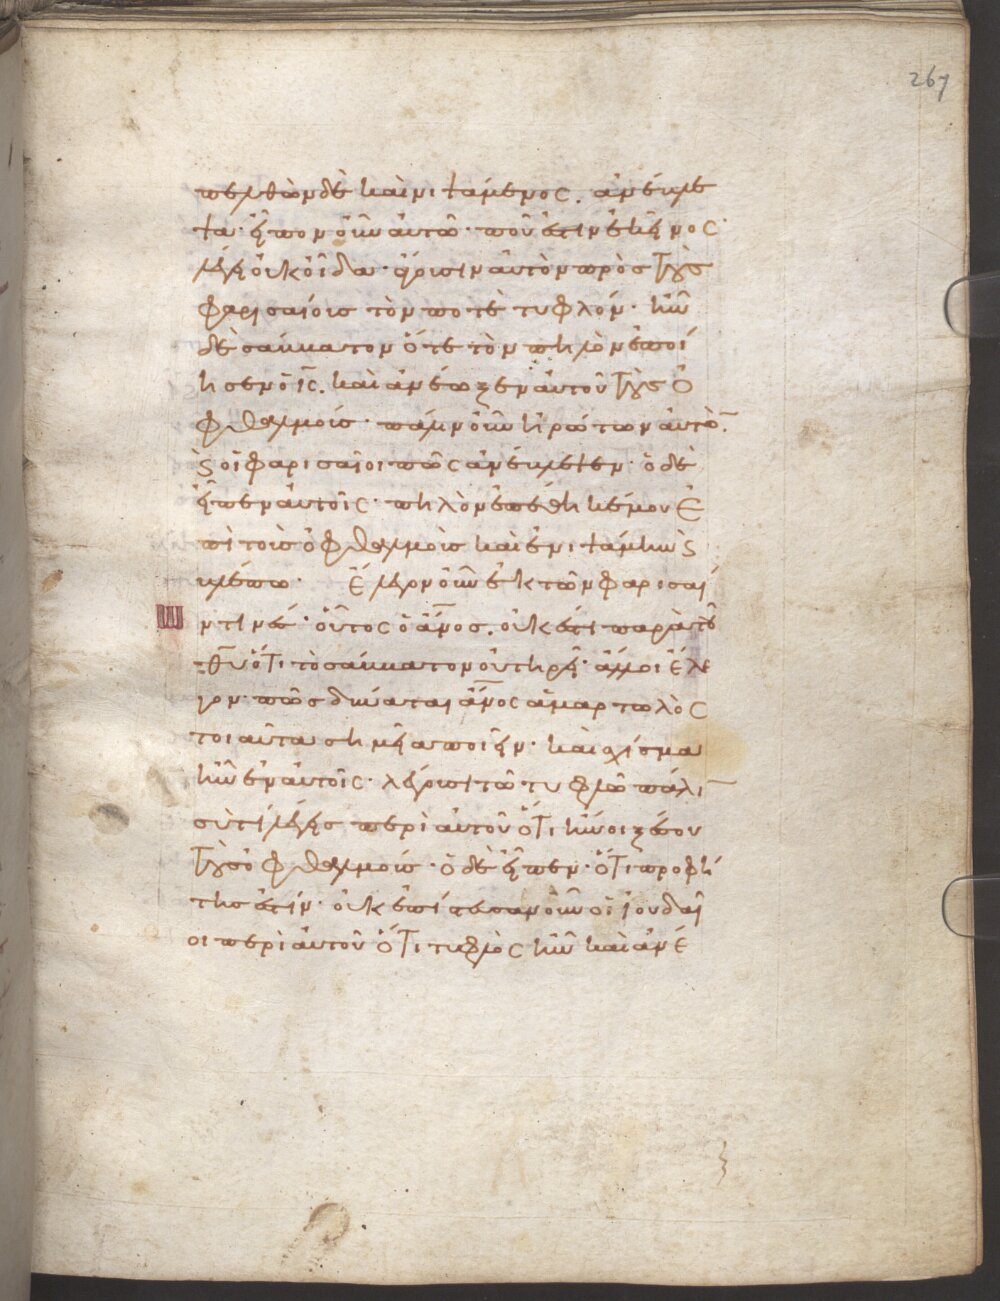 267
πελθὼν δὲ καὶ νιψάμενος. ἀνέβλε
ψα· εἶπον οὖν αὐτῶ· ποῦ ἐστιν ἐκεῖνος·
λέγει οὐκ οἶδα· ἄγουσιν αὐτὸν πρὸς τοὺς
φαρισαίους τὸν ποτὲ τυφλόν· ἦν
δὲ σάββατον ὅτε τὸν πηλὸν ἐποί
ησεν ὁ ι̅ς̅. καὶ ἀνέωξεν αὐτοῦ τοὺς ὀ
φθαλμούς· πάλιν οὖν ἠρώτων αὐτὸ̅.
ϛ οἱ φαρισαῖοι πῶς ἀνέβλεψεν· ὁ δὲ
εἶπεν αὐτοῖς· πηλὸν ἐπέθηκέ μου ἐ
πὶ τοὺς ὀφθαλμοὺς καὶ ἐνιψάμην ϛ
βλέπω· ἔλεγον οὖν ἐκ τῶν φαρισαί
ων τινές· οὗτος ὁ α̅ν̅ο̅ς̅. οὐκ ἔστι παρὰ τοῦ
θ̅υ̅ ὅτι τὸ σάββατον οὐ τηρεῖ· ἄλλοι ἔλε
γον· πῶς δύναται α̅ν̅ο̅ς̅ ἁμαρτωλὸς
τοιαῦτα σημεῖα ποιεῖν· καὶ σχίσμα
ἦν ἐν αὐτοῖς· λέγουσι τῶ τυφλῶ πάλι̅
σὺ τί λέγεις περὶ αὐτοῦ ὅτι ἤνοιξέ σου
τοὺς ὀφθαλμούς· ὁ δὲ εἶπεν· ὅτι προφή
της ἐστίν· οὐκ ἐπίστευσαν οὖν οἱ ἰουδαῖ
οι περὶ αὐτοῦ ὅτι τυφλὸς ἦν καὶ ἀνέ